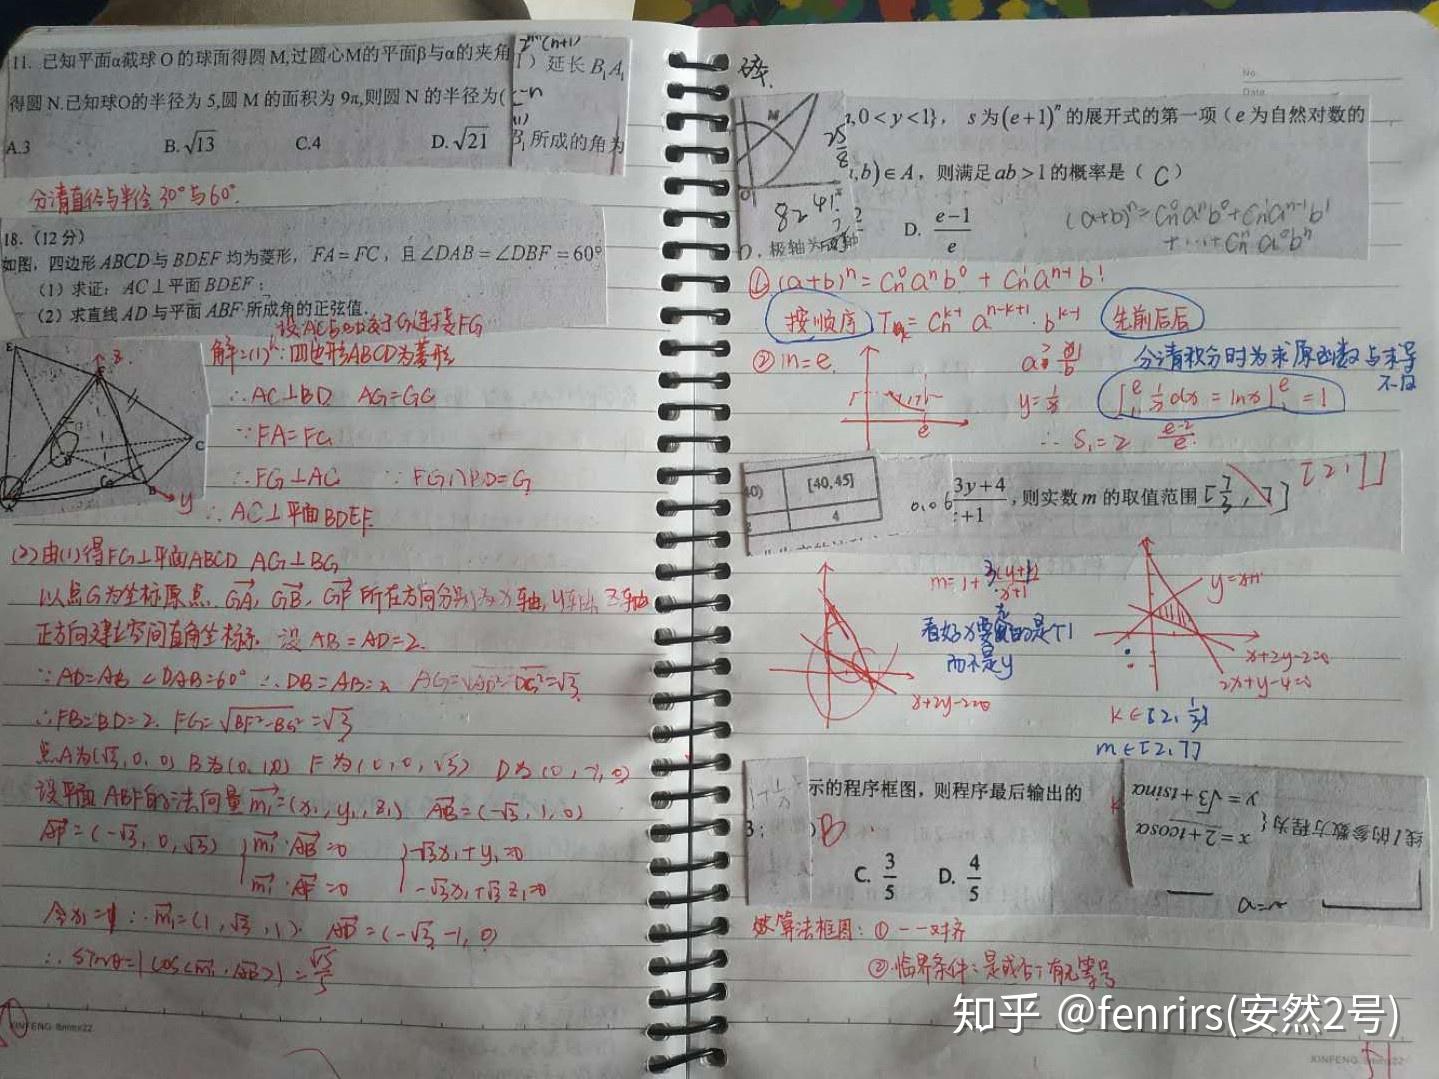 11. 已知平面α截球 O 的球面得圆 M,过圆心M的平面β与α的夹角
得圆 N.已知球O的半径为 5,圆 M 的面积为 9π,则圆 N 的半径为(
A.3 B.√13 C.4 D.√21
2ⁿ⁺¹(n+1)
) 延长 B₁A₁
B₁所成的角为
分清直径与半径 30°与60°.
18.（12 分）
如图，四边形 ABCD 与 BDEF 均为菱形，FA=FC，且∠DAB=∠DBF=60°
（1）求证：AC⊥平面BDEF；
（2）求直线 AD 与平面 ABF 所成角的正弦值.
设AC与BD交于G,连接FG
解:(1)∵四边形ABCD为菱形
∴AC⊥BD AG=GC
∵FA=FC
∴FG⊥AC ∵FG∩BD=G
∴AC⊥平面BDEF
(2)由(1)得FG⊥平面ABCD AG⊥BG
以点G为坐标原点 GA, GB, GF 所在方向分别为x轴, y轴, z轴
正方向建立空间直角坐标系 设 AB=AD=2.
∵AD=AB ∠DAB=60° ∴DB=AB=2 AG=√AD²-DG²=√3
∴FB=BD=2. FG=√BF²-BG²=√3
点A为(√3,0,0) B为(0,1,0) F为(0,0,√3) D为(0,-1,0)
设平面ABF的法向量m₁=(x₁,y₁,z₁) AB=(-√3,1,0)
AF=(-√3,0,√3) m₁·AB=0 -√3x₁+y₁=0
m₁·AF=0 -√3x₁+√3z₁=0
令x₁=1 ∴m₁=(1,√3,1) AD=(-√3,-1,0)
∴sinθ=|cos<m₁·AD>|=√15/5
XINFENG
,0<y<1}，s 为(e+1)ⁿ的展开式的第一项（e 为自然对数的
,b)∈A，则满足 ab>1的概率是（ C ）
25/8
82 41
D. (e−1)/e
极轴为
(a+b)ⁿ=Cn⁰aⁿb⁰+Cn¹aⁿ⁻¹b¹
+…+Cnⁿa⁰bⁿ
① (a+b)ⁿ=Cn⁰aⁿb⁰+Cn¹aⁿ⁻¹b¹
按顺序 Tk=Cn^(k-1) a^(n-k+1)·b^(k-1) 先前后后
② m=e. a>1/b 分清积分时为求原函数与求导
不同
y=1/x ∫₁ᵉ 1/x dx=lnx|₁ᵉ=1
e
∴ (e-2)/e
[40,45]
4
0.06
3y+4
+1 ，则实数 m 的取值范围[7/3,7] [2,7]
m=1+3(y+1)/(x+1)
而不是y
x+2y-2=0
y=x+1
x+2y-2=0
2x+y-4=0
m∈[2,7]
示的程序框图，则程序最后输出的
B
C. 3/5 D. 4/5
线 l 的参数方程为{x=2+tcosα
y=√3+tsinα
算法框图: ①一一对齐
②临界条件:是或否,有无等号
知乎 @fenrirs(安然2号)
XINFENG
51